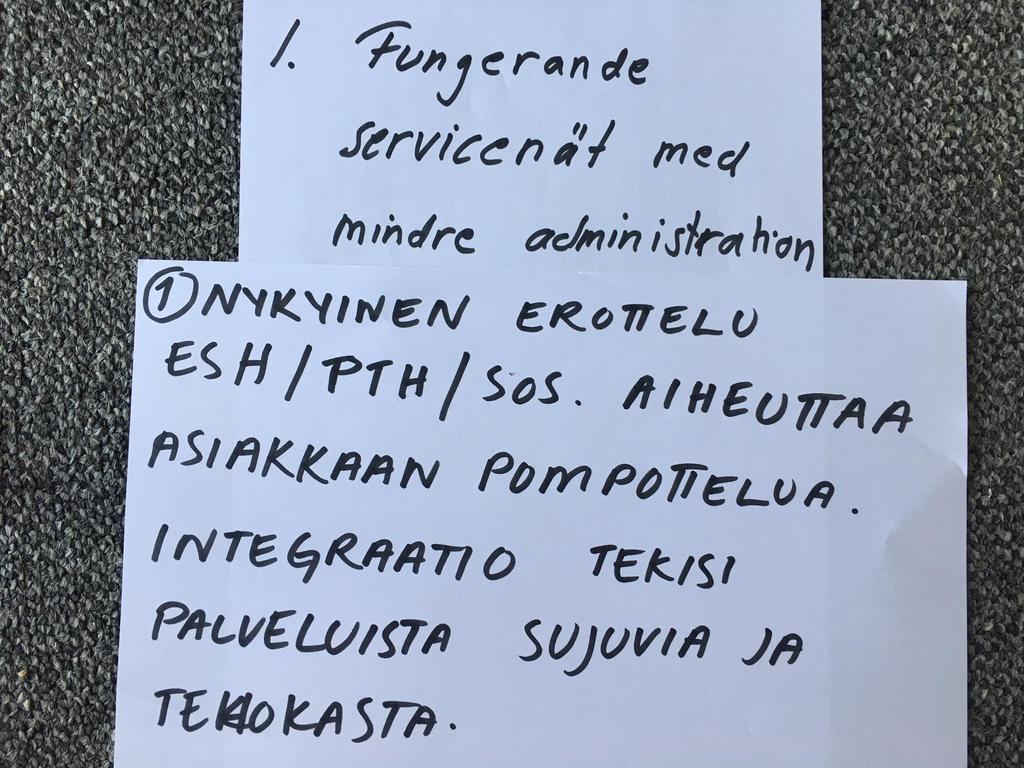 1. Fungerande
servicenät med
mindre administration
① NYKYINEN EROTTELU
ESH/PTH/SOS. AIHEUTTAA
ASIAKKAAN POMPOTTELUA.
INTEGRAATIO TEKISI
PALVELUISTA SUJUVIA JA
TEHOKASTA.